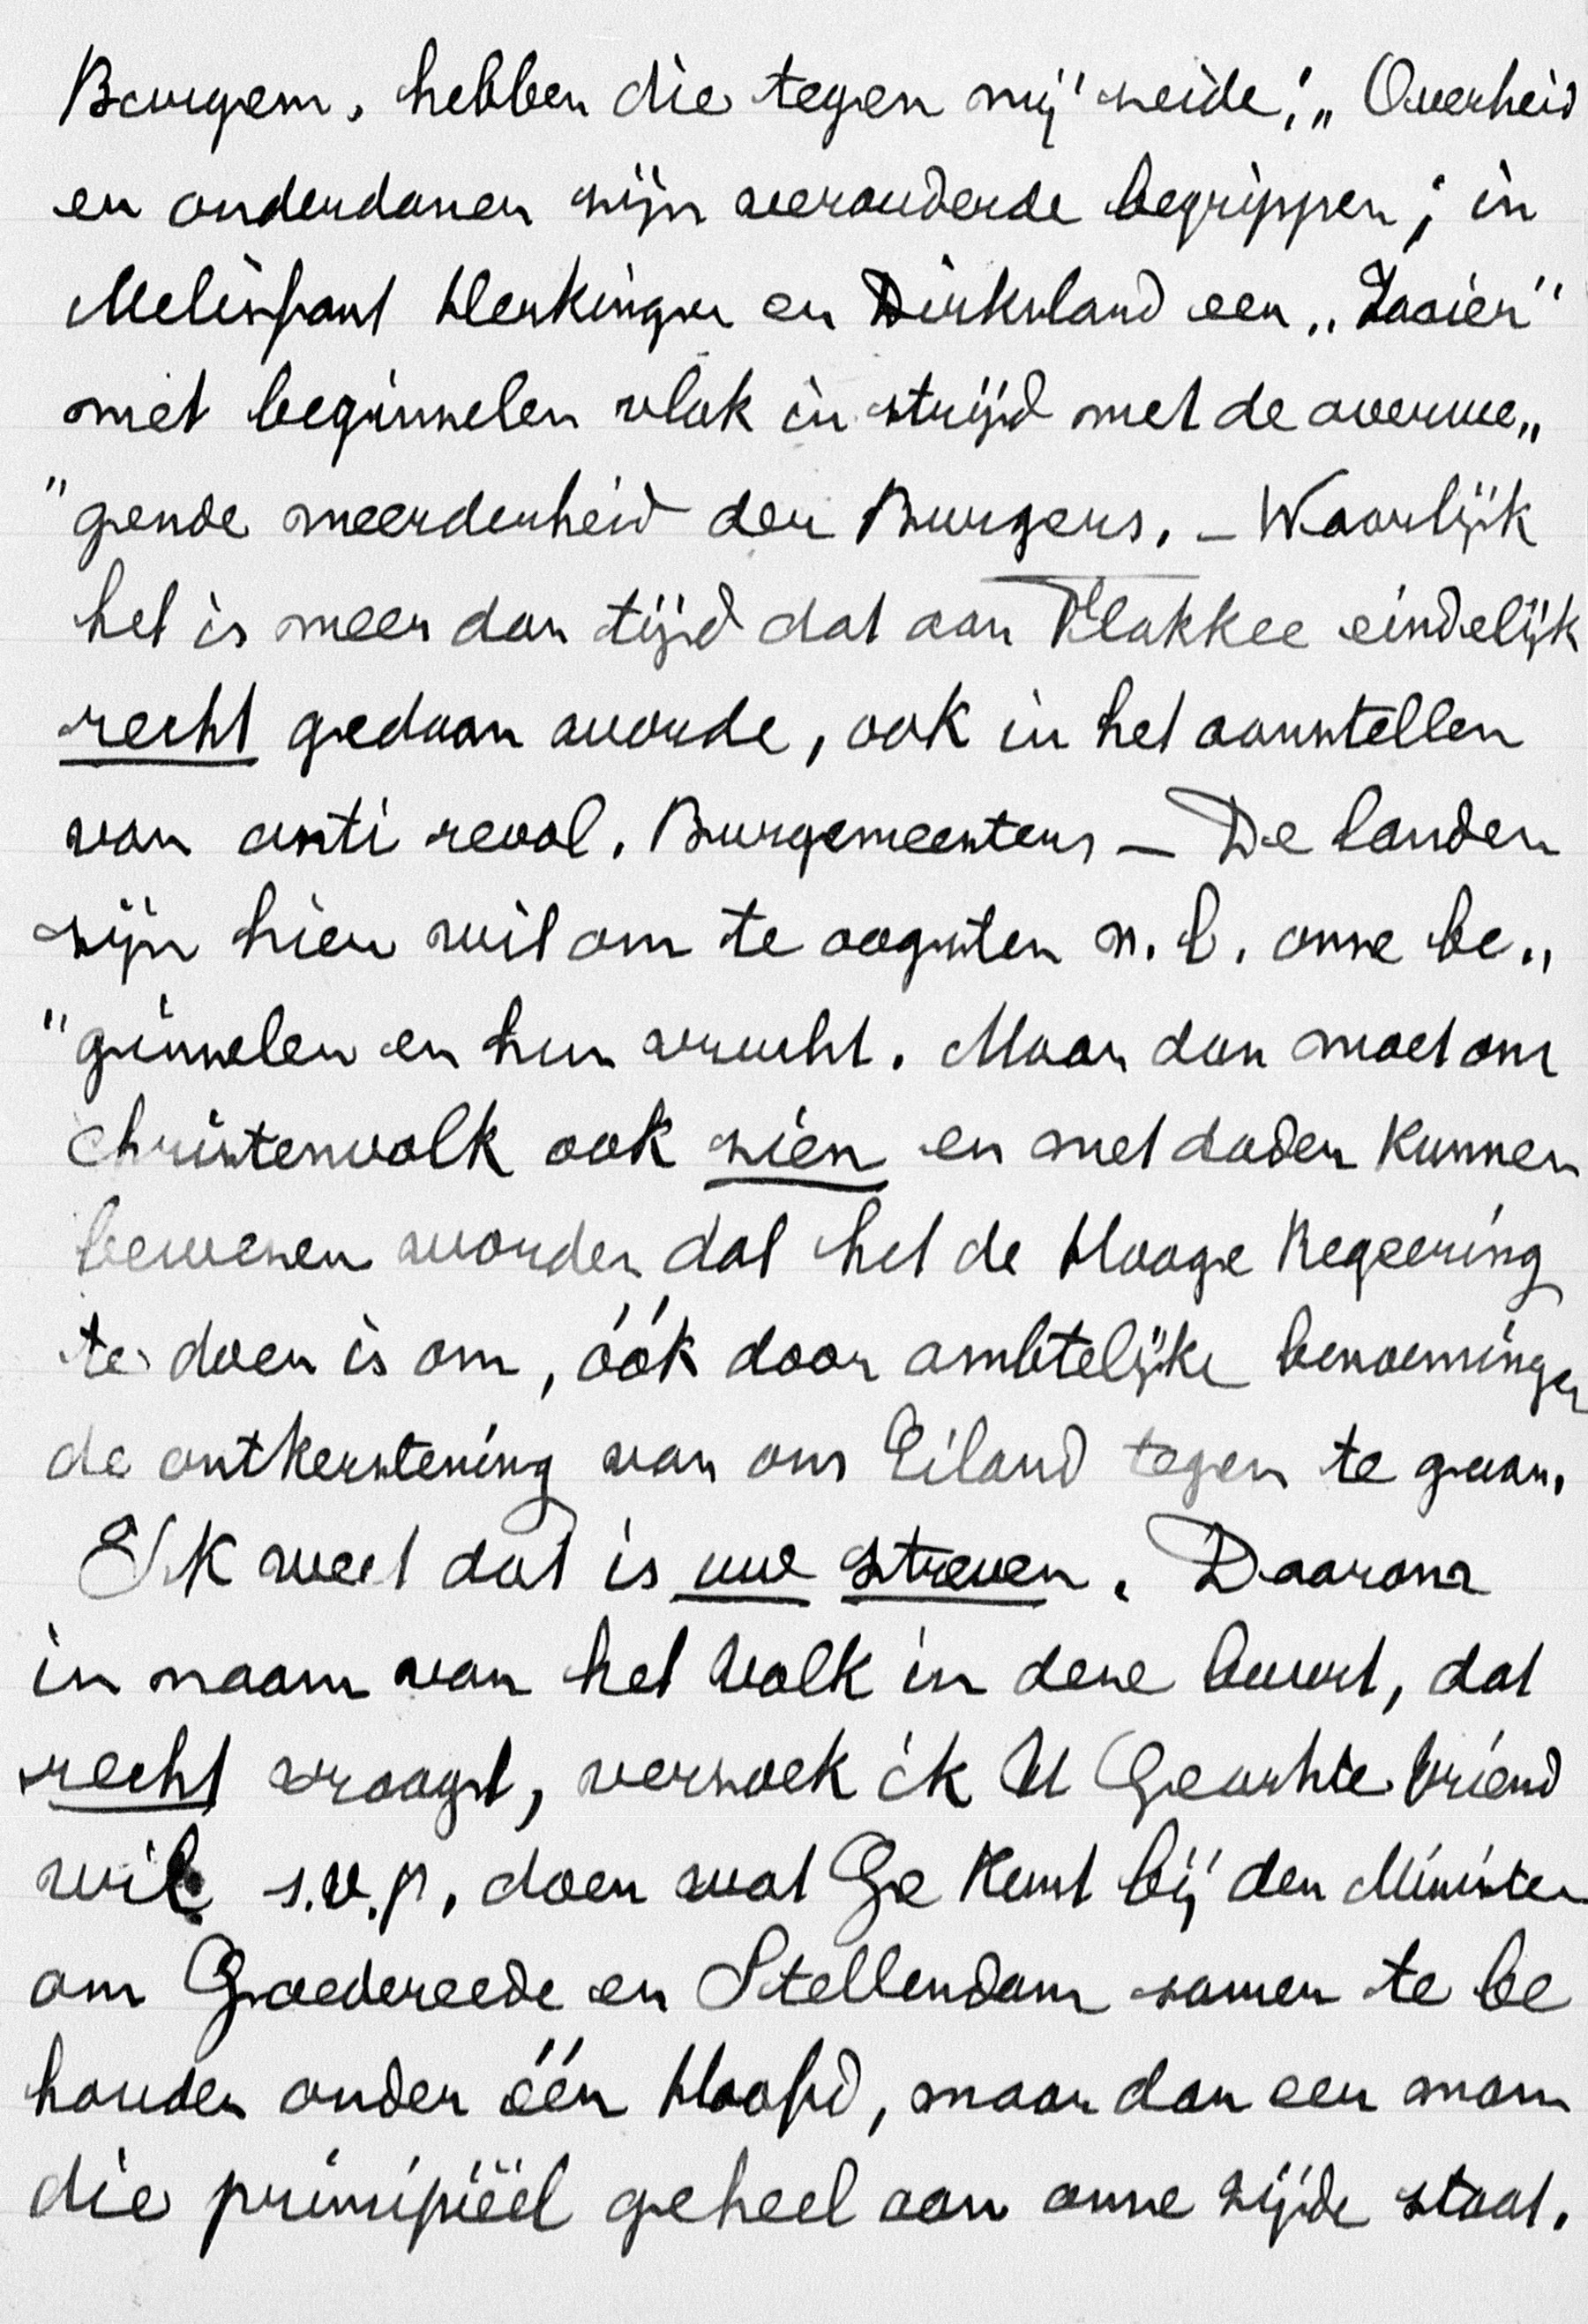 Burgem. hebben die tegen mij zeide: „Overheid
en onderdanen zijn verouderde begrippen; in
Melissant Herkingen en Dirksland een „Zaaier"
met beginselen vlak in strijd met de overwe„
"gende meerderheid der Burgers. – Waarlijk
het is meer dan tijd dat aan Flakkee eindelijk
recht gedaan worde, ook in het aanstellen
van anti revol. Burgemeesters – De landen
zijn hier wit om te oogsten n.l. onze be„
"ginselen en hun vrucht. Maar dan moet ons
Christenvolk ook zien en met daden kunnen
bewezen worden dat het de Hooge Regeering
te doen is om, óók door ambtelijke benoemingen
de ontkerstening van ons Eiland tegen te gaan.
Ik weet dat is uw streven. Daarom
in naam van het Volk in deze buurt, dat
recht vraagt, verzoek ik U Geachte Vriend
wil s.v.p. doen wat Ge kunt bij den Minister
om Goedereede en Stellendam samen te be
houden onder één Hoofd, maar dan een man
die principiëel geheel aan onze zijde staat.